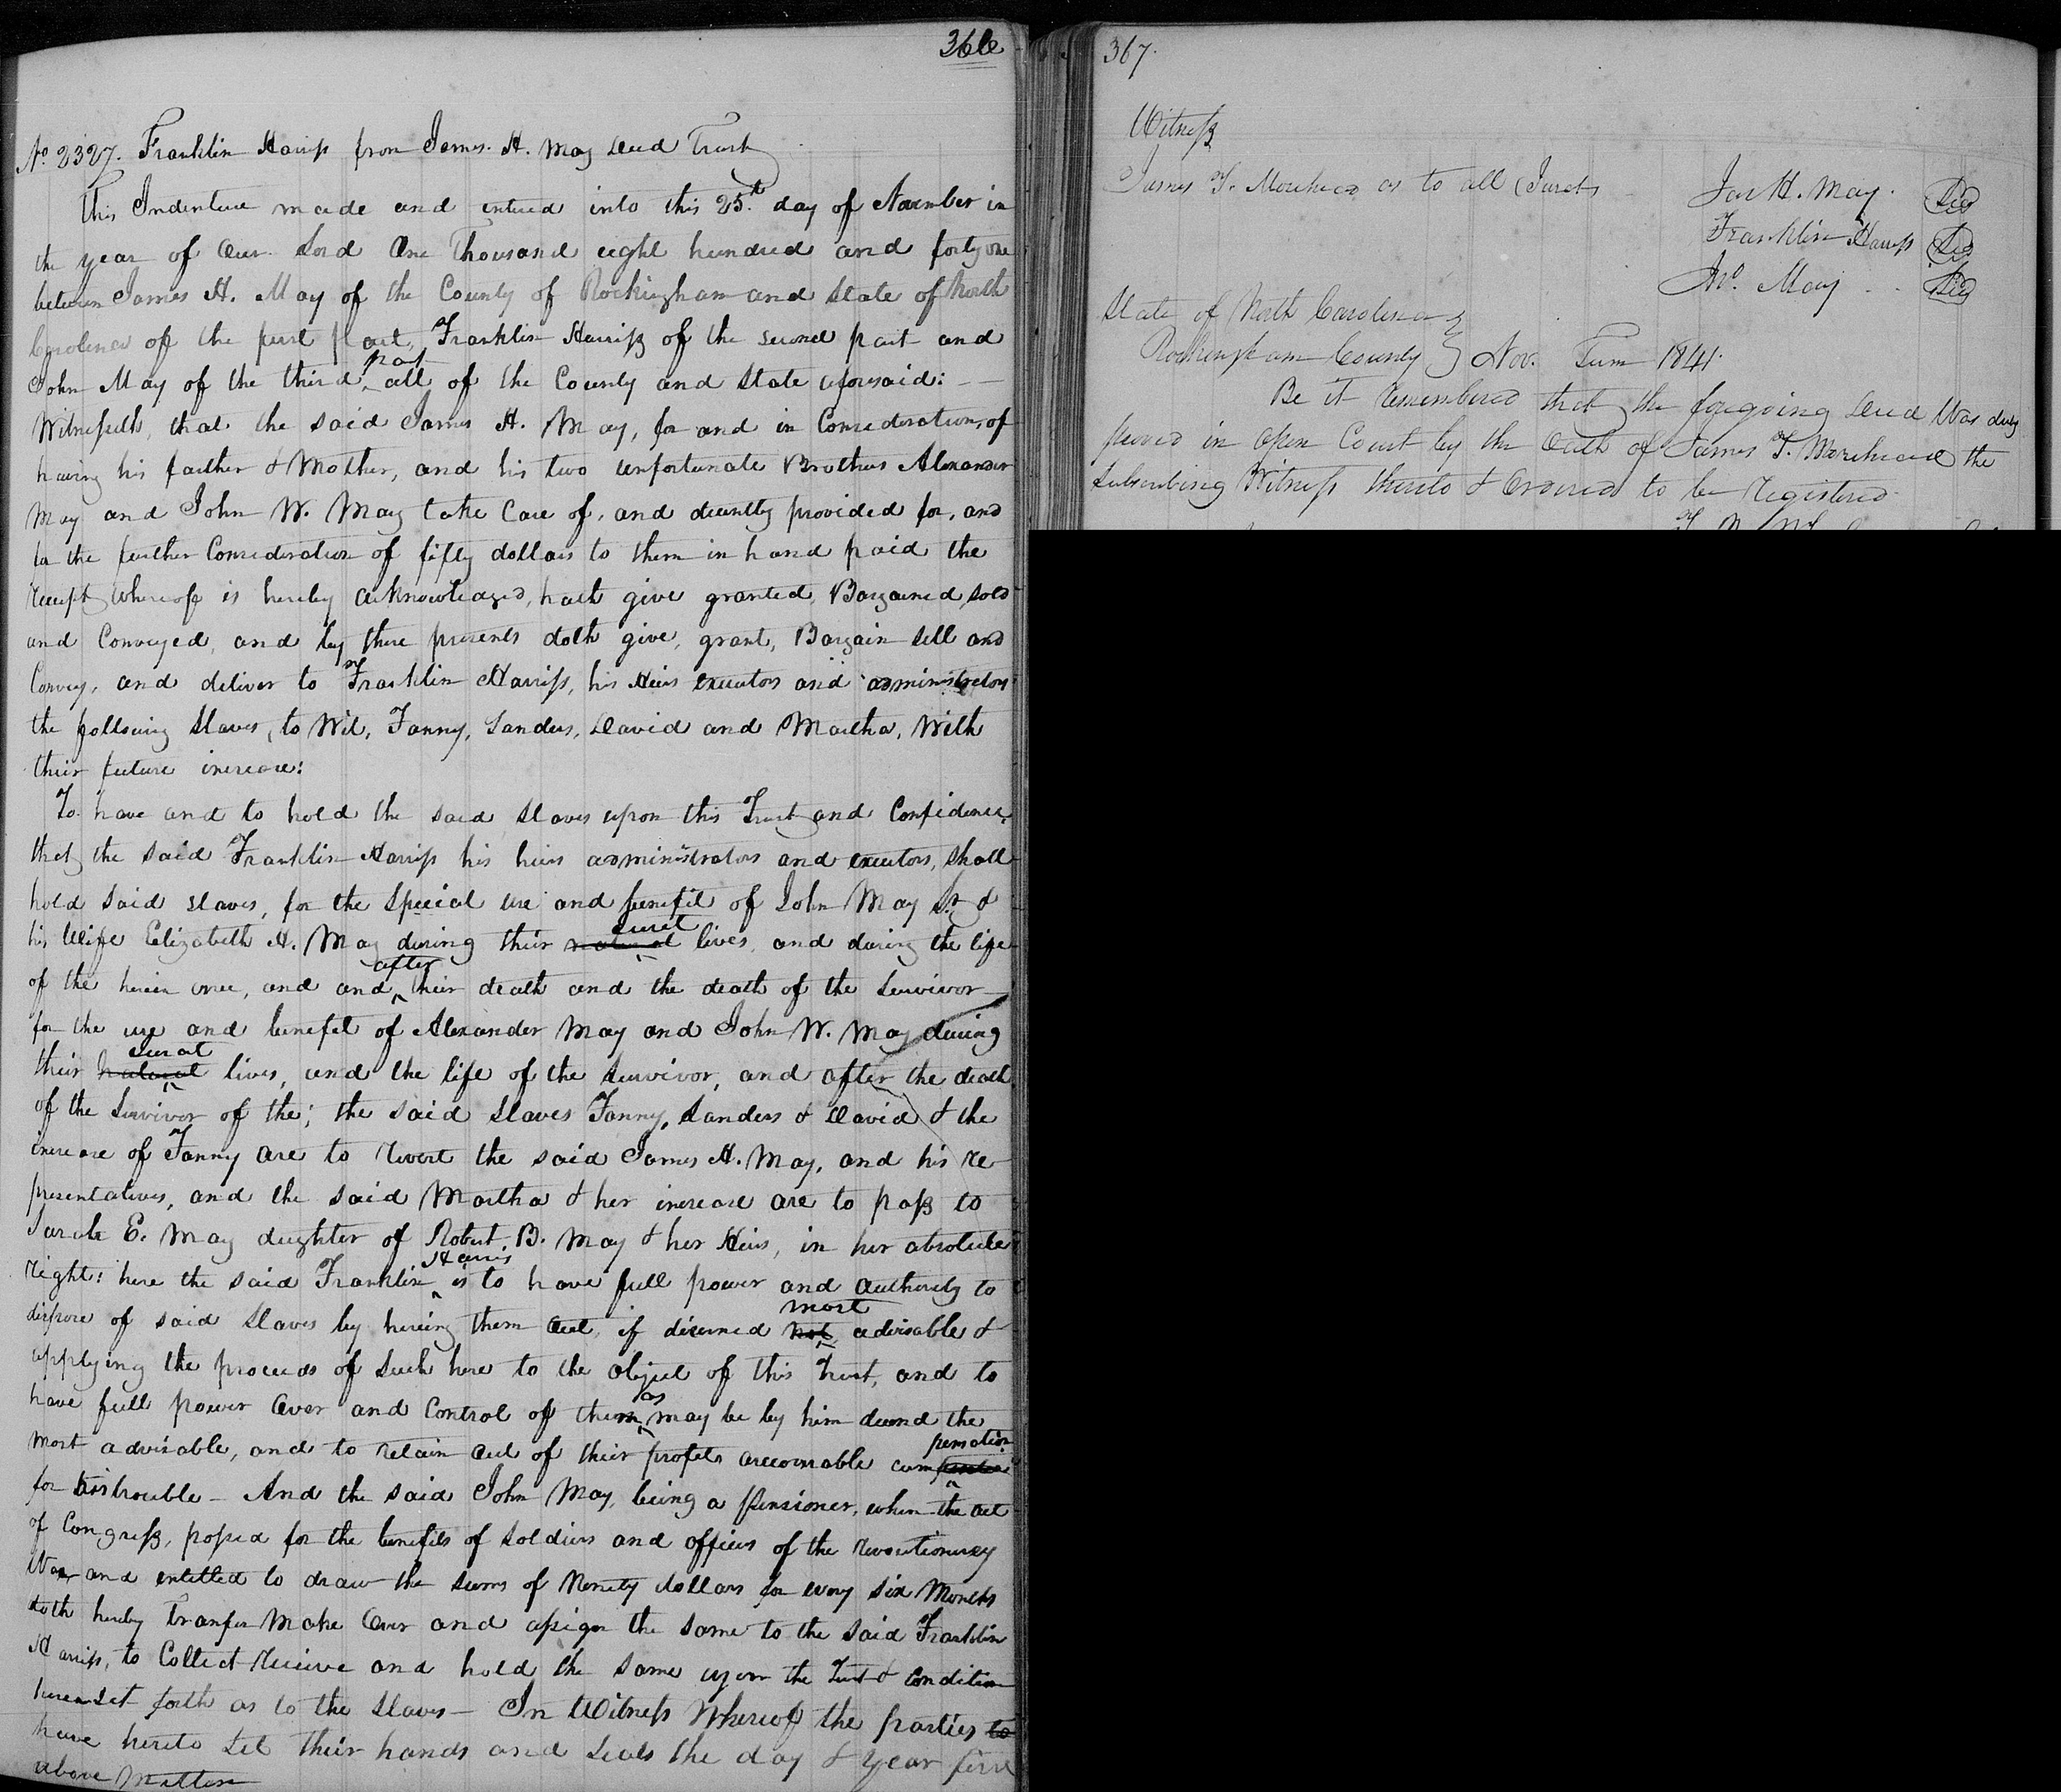 366
No 2327. Franklin Harriss from James. H. May Deed Trust
This Indenture made and entered into this 25th day of November in
the year of our Lord One Thousand eight hundred and forty one
between James H. May of the County of Rockingham and State of North
Carolina of the first part, Franklin Harriss of the second part and
John May of the third part all of the County and State aforesaid: —
Witnesseth, that the said James H. May, for and in Consideration, of
having his father & Mother, and his two unfortunate Brothers Alexander
May and John W. May take Care of, and decently provided for, and
for the further Consideration of fifty dollars to them in hand paid the
receipt whereof is hereby acknowledged, hath give granted, Bargained, sold
and Conveyed, and by these presents doth give, grant, Bargain Sell and
Convey, and deliver to Franklin Harriss, his Heirs executors and administrators
the following Slaves, to Wit, Fanny, Sanders, David and Martha, With
their future increase:
To have and to hold the said Slaves upon this Trust and Confidence,
that the said Franklin Harriss his heirs administrators and executors, shall
hold said slaves, for the Special use and benefit of John May Sr. &
his Wife Elizabeth H. May during their natural lives, and during the life
of the one, and and after their death and the death of the Survivor —
for the use and benefit of Alexander May and John W. May during
their natural lives, and the life of the Survivor, and after the death
of the Survivor of the; the said Slaves Fanny, Sanders & David & the
increase of Fanny are to revert the said James H. May, and his re-
presentatives, and the said Martha & her increase are to pass to
Sarah E. May daughter of Robert B. May & her Heirs, in her absolute
right: here the said Franklin Harris is to have full power and authority to
dispose of said Slaves by hireing them out, if deemed not most advisable &
applying the proceeds of such hire to the object of this Trust, and to
have full power over and Control of them as may be by him deemd the
most advisable, and to retain out of their profits a reasonable compensation
for his trouble — And the said John May, being a Pensioner, when the act
of Congress, passed for the benefits of Soldiers and officers of the revolutionary
War and entitled to draw the sums of Ninety dollars for every six Months
doth hereby Tranfer Make Over and assign the same to the said Franklin
Harriss, to Collect receive and hold the same upon the Trust & Condition
herein set forth as to the Slaves — In Witness Whereof the parties to
have hereto set their hands and seals the day & year first
above Written
367.
Witness
James T. Morehead as to all Jurat
Jas H. May. Seal
Franklin Harriss Seal
Jno. May Seal
State of North Carolina }
Rockingham County } Nov. Term 1841.
Be it remembered that the foregoing Deed Was duly
proved in Open Court by the Oath of James T. Morehead the
subscribing Witness thereto & Ordered to be registered.